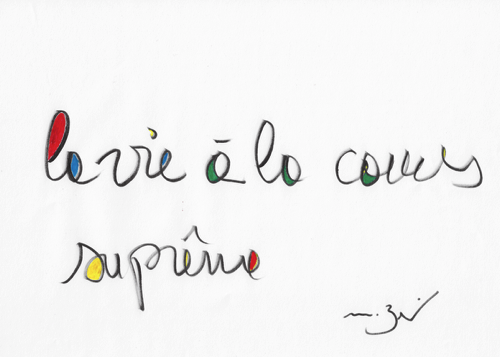 la vie à la cours
suprême